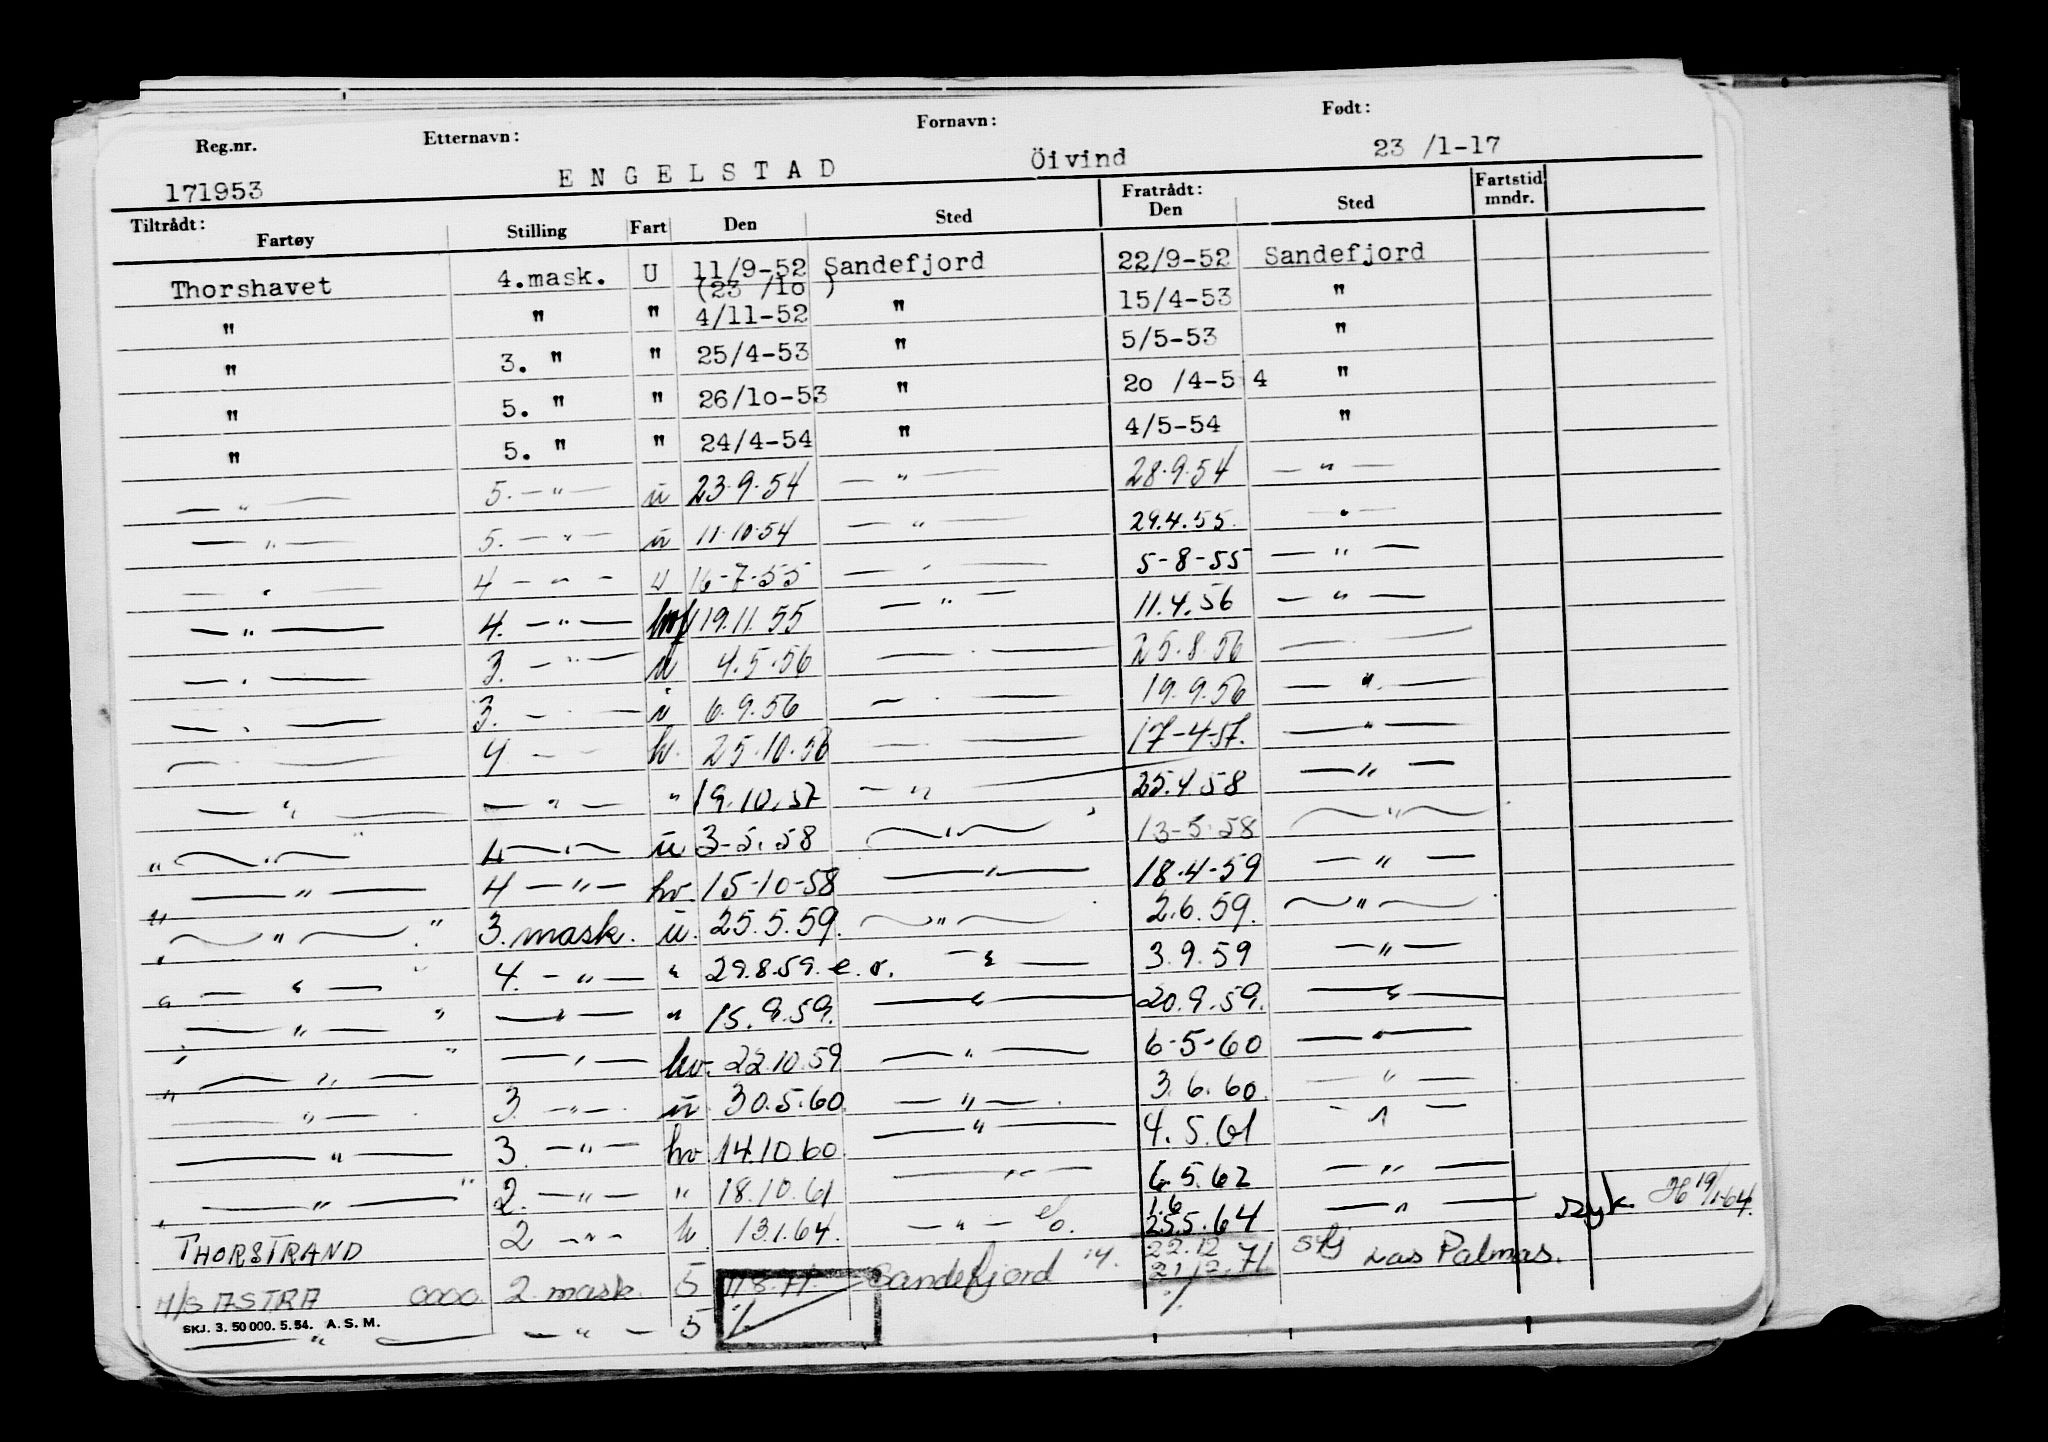 Reg.nr. Etternavn: Fornavn: Født:
171953 ENGELSTAD Öivind 23 /1-17
Tiltrådt: Fratrådt:
Fartøy Stilling Fart Den Sted Den Sted Fartstid mndr.
Thorshavet 4.mask. U 11/9-52 Sandefjord 22/9-52 Sandefjord
(23 /10 )
" " " 4/11-52 " 15/4-53 "
" 3. " " 25/4-53 " 5/5-53 "
" 5. " " 26/10-53 " 20 /4-5 4 "
" 5. " " 24/4-54 " 4/5-54 "
— " — 5. — " — u 23.9.54 — " — 28.9.54 — " —
— " — 5. — " — u 11.10.54 — " — 29.4.55. — " —
— " — 4 — " — u 16-7-55 — " — 5-8-55 — " —
— " — 4. — " — hvf 19.11.55 — " — 11.4.56 — " —
— " — 3. — " — u 4.5.56 — " — 25.8.56 — " —
— " — 3. — " — u 6.9.56 — " — 19.9.56 — " —
— " — 4 — " — hv. 25.10.56 — " — 17-4-57. — " —
— " — — " — " 19.10.57 — " — 25.4.58 — " —
— " — 4 — " — u 3-5.58 — " — 13-5-58 — " —
— " — 4 — " — hv. 15-10-58 — " — 18.4-59 — " —
— " — 3. mask. u. 25.5.59. — " — 2.6.59. — " —
— " — 4. — " — " 29.8.59. e.o. — " — 3.9.59 — " —
— " — — " — " 15.9.59. — " — 20.9.59. — " —
— " — — " — hv. 22.10.59 — " — 6-5-60 — " —
— " — 3 — " — u 30.5.60. — " — 3.6.60. — " —
— " — 3 — " — hv. 14.10.60 — " — 4.5.61 — " —
— " — 2. — " — " 18.10.61 — " — 6.5.62 — " —
THORSTRAND 2 — " — u. 13.1.64. — " — e/o. 1.6 25.5.64 — " — syk. 19/1-64.
M/S ASTRA 0000 2 mask. 5 11.8.71 Sandefjord 22.12 21/12.71 Las Palmas.
— " — — " — 5 %
SKJ. 3. 50 000. 5.54. A. S. M.